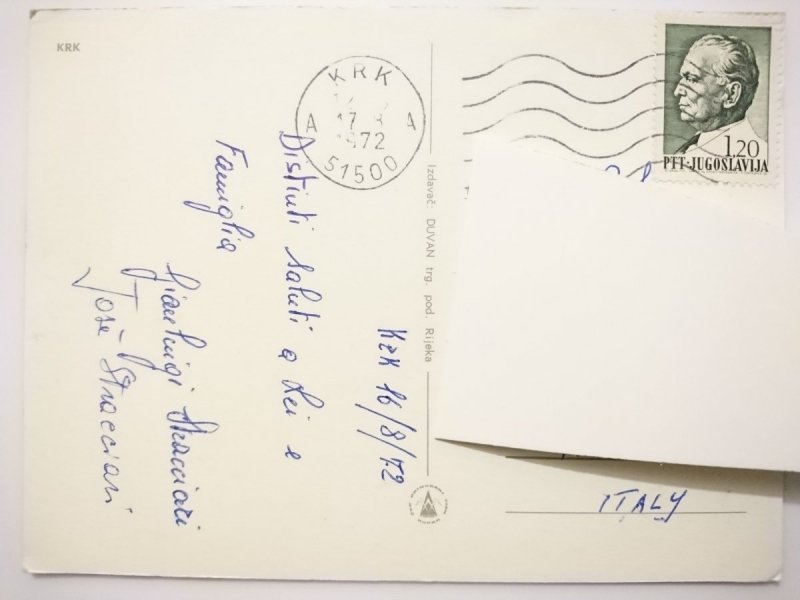 KRK
KRK
17. 8
1972
A A
51500
1,20
PTT-JUGOSLAVIJA
Izdavač: DUVAN trg. pod. Rijeka
Krk 16/8/72
Distinti saluti a Lei e
Famiglia
Gianluigi Stracciari
Josè Stracciari
ITALY